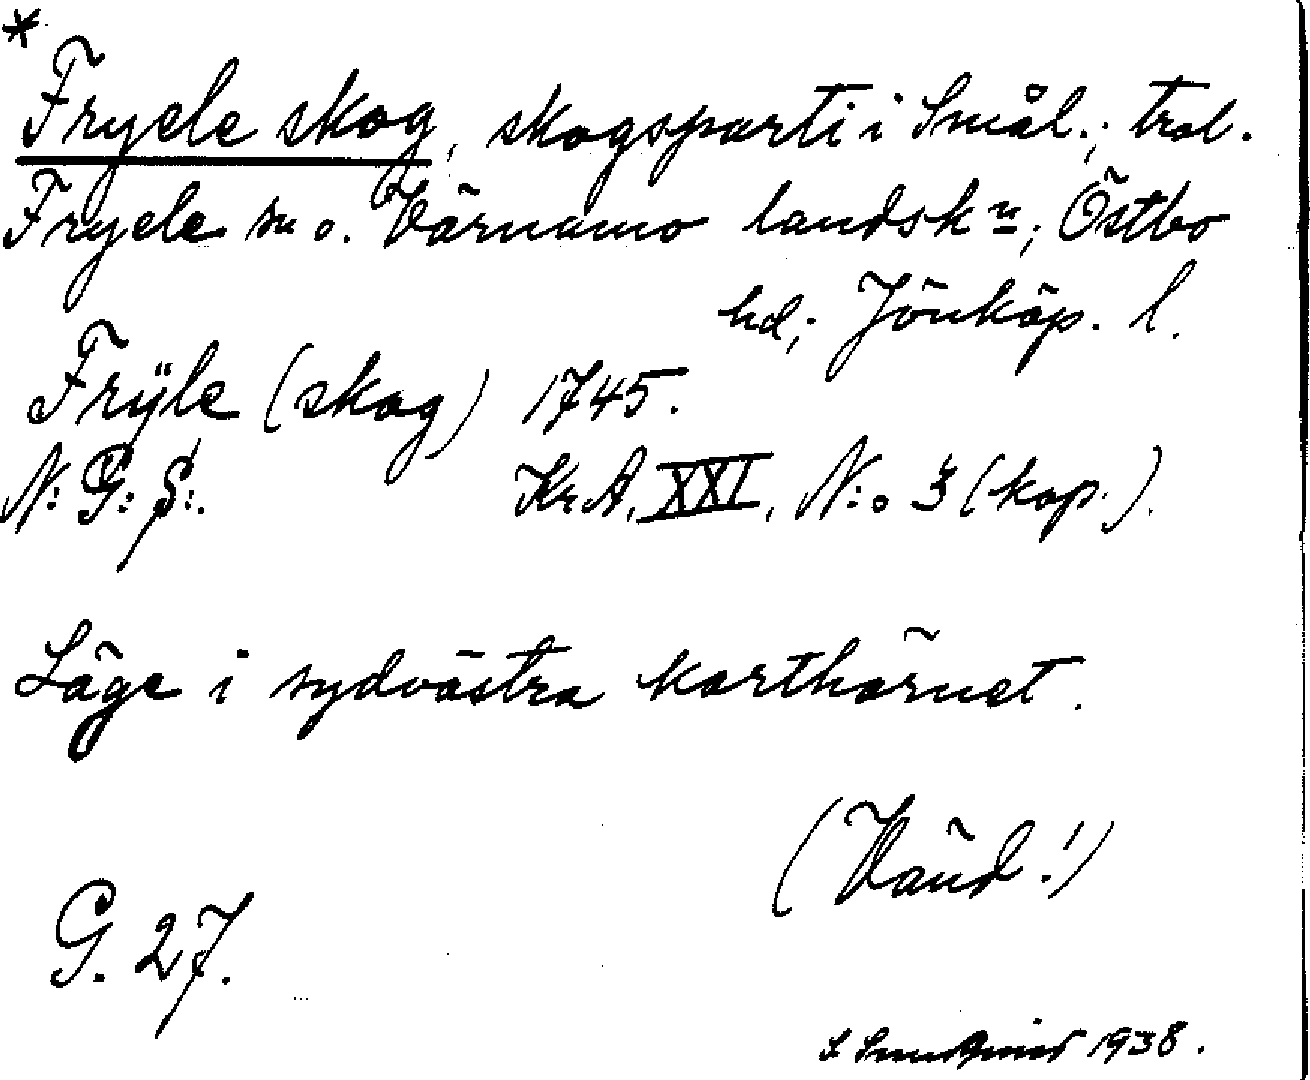 *
Fryele skog, skogsparti i Smål.; trol.
Fryele sn o. Värnamo landskn; Östbo
hd; Jönköp. l.
Frÿle (skog) 1745.
N: G: S:. Kr. A. XXI, N:o 3 (kop.).
Läge i sydvästra karthörnet.
(Vänd!)
G. 27.
1938.